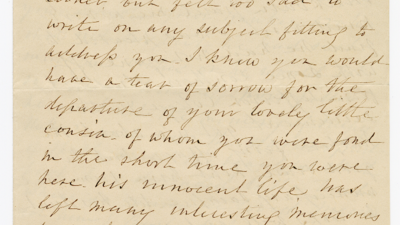 sooner, but felt too sad to
write on any subject fitting to
address you I know you would
have a tear of sorrow for the
departure of your lovely little
cousin of whom you were fond
in the short time you were
here his innocent life has
left many interesting memories